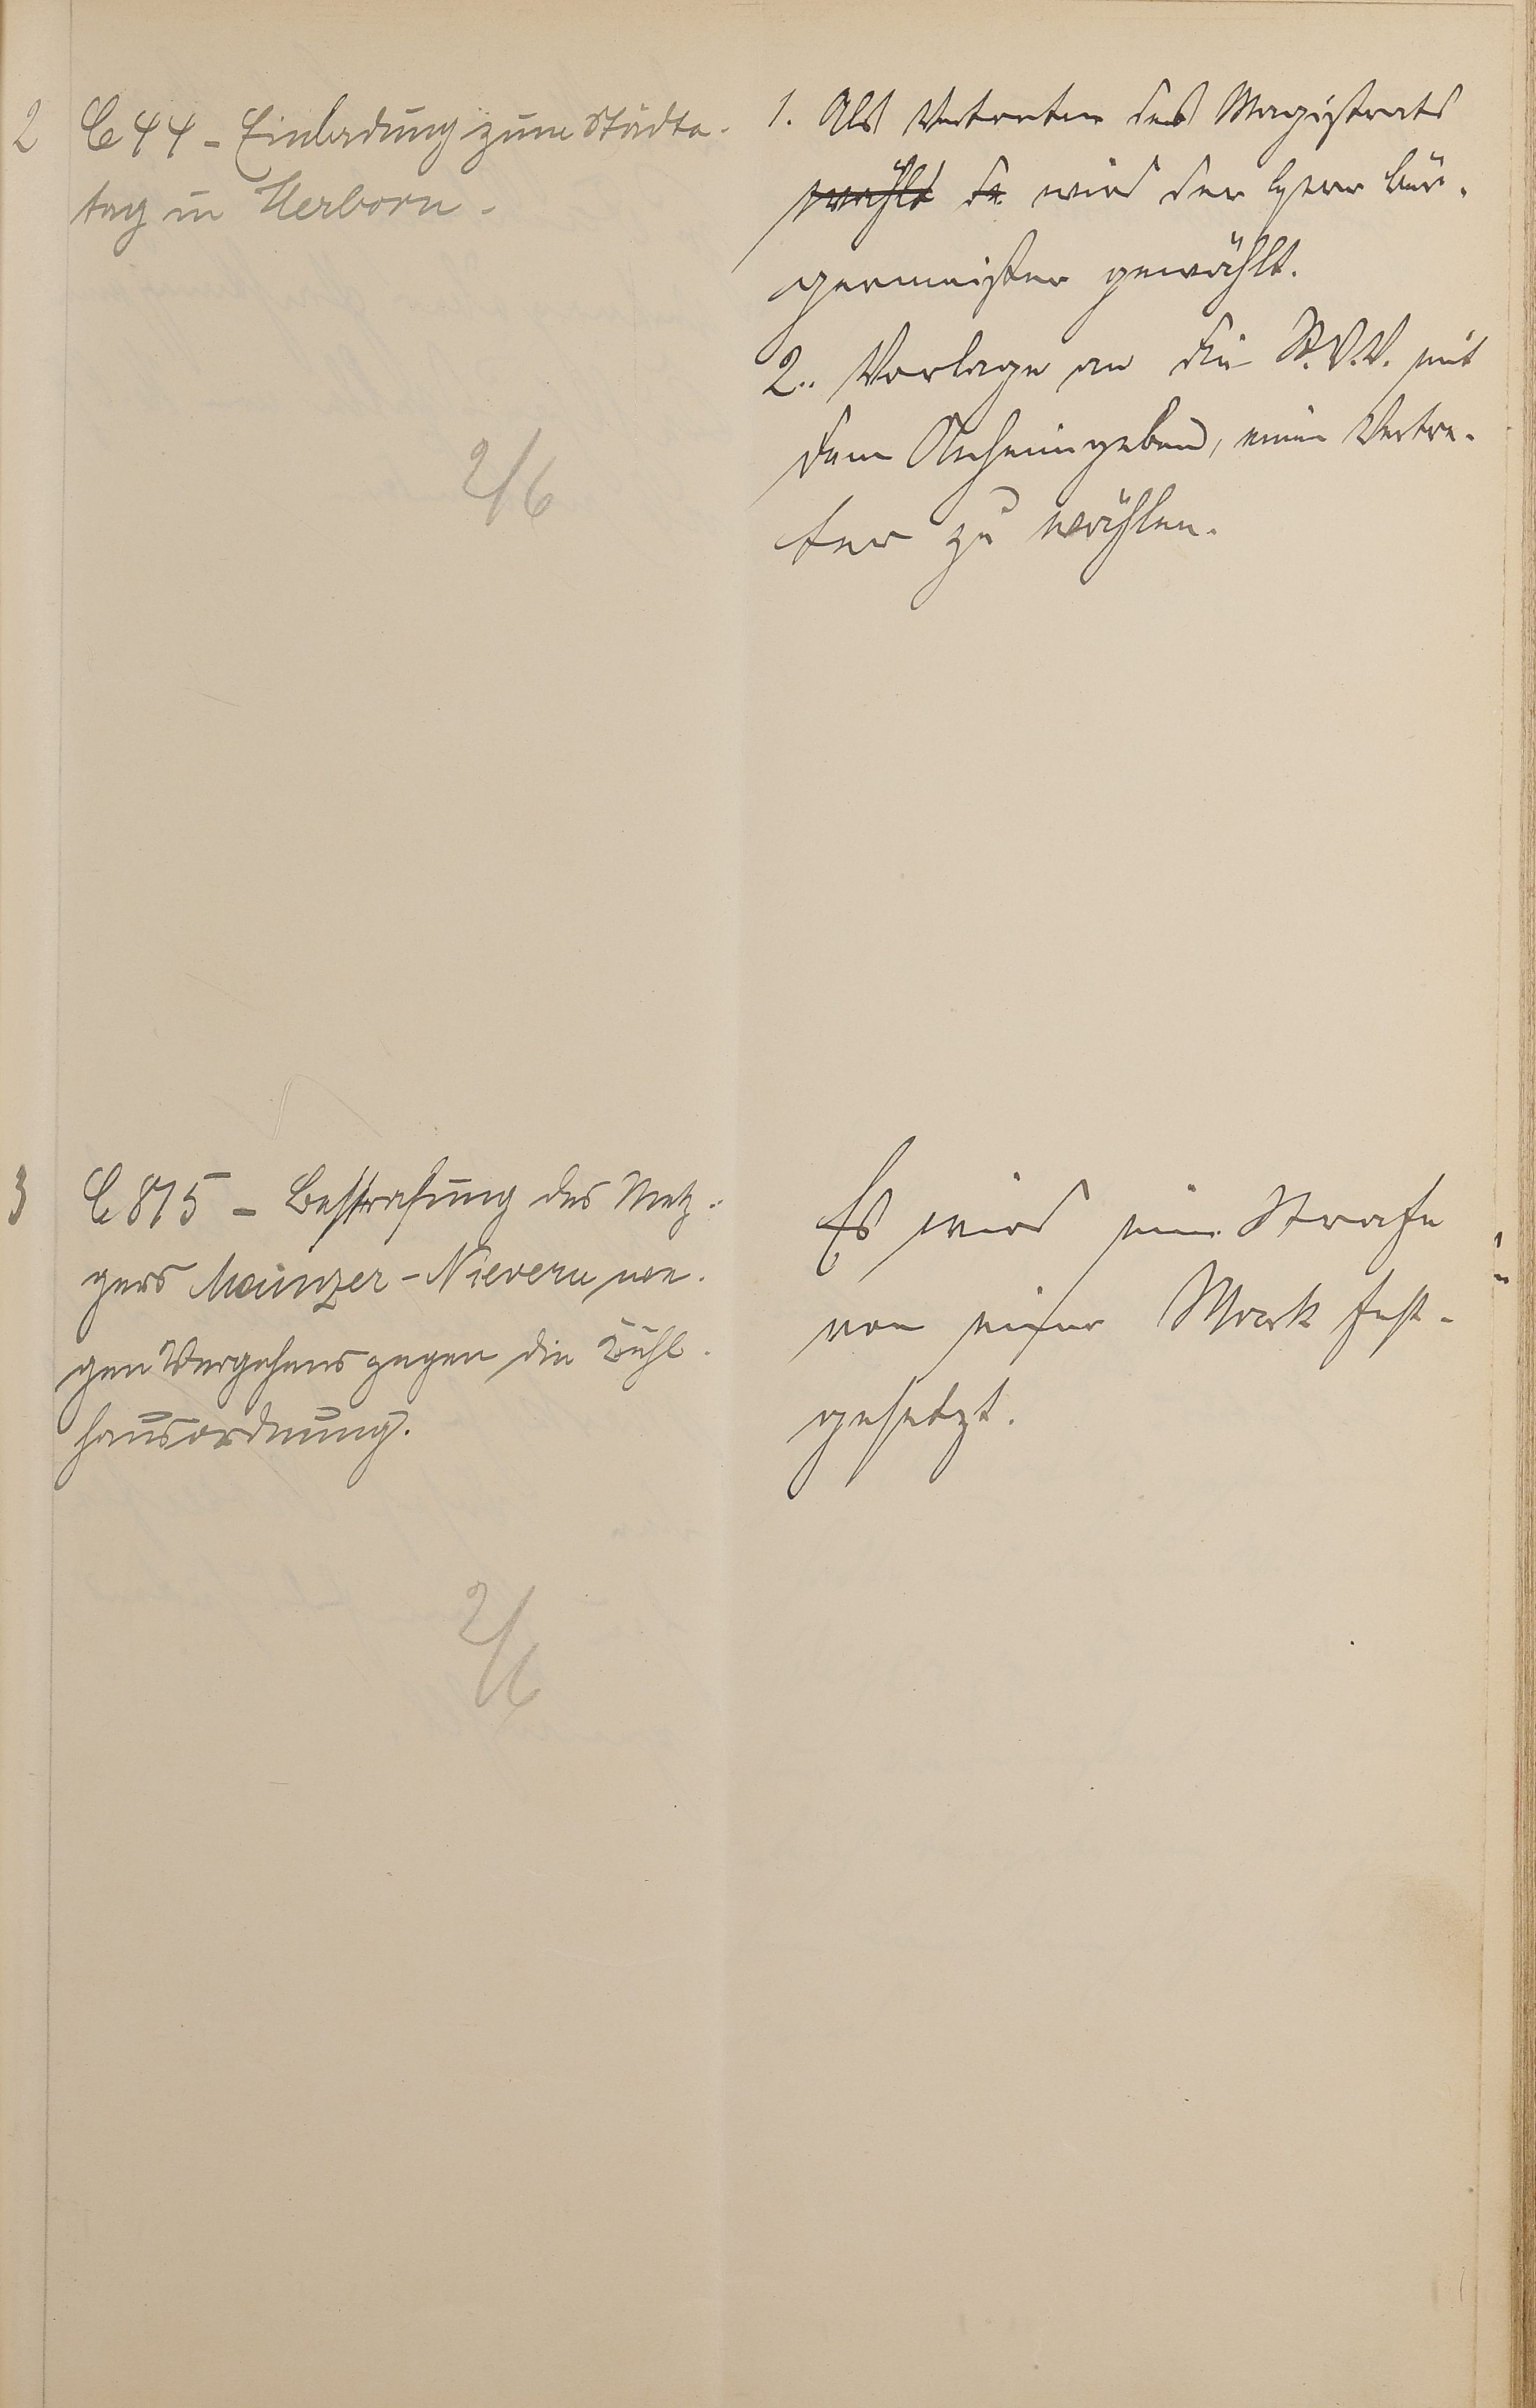 2
C 44 - Einladung zum Städte-
tag in Herborn.
2/6
1. Als Vertreter des Magistrats
wählt de wird der Herr Bür-
germeister gewählt.
2. Vorlage an die St.V.V. mit
dem Anheimgeben, einen Vertre-
ter zu wählen.
3
C 875 - Bestrafung des Metz-
gers Mainzer-Nievern we-
gen Vergehens gegen die Kühl-
hausordnung.
2/6
Es wird eine Strafe
von einer Mark fest-
gesetzt.